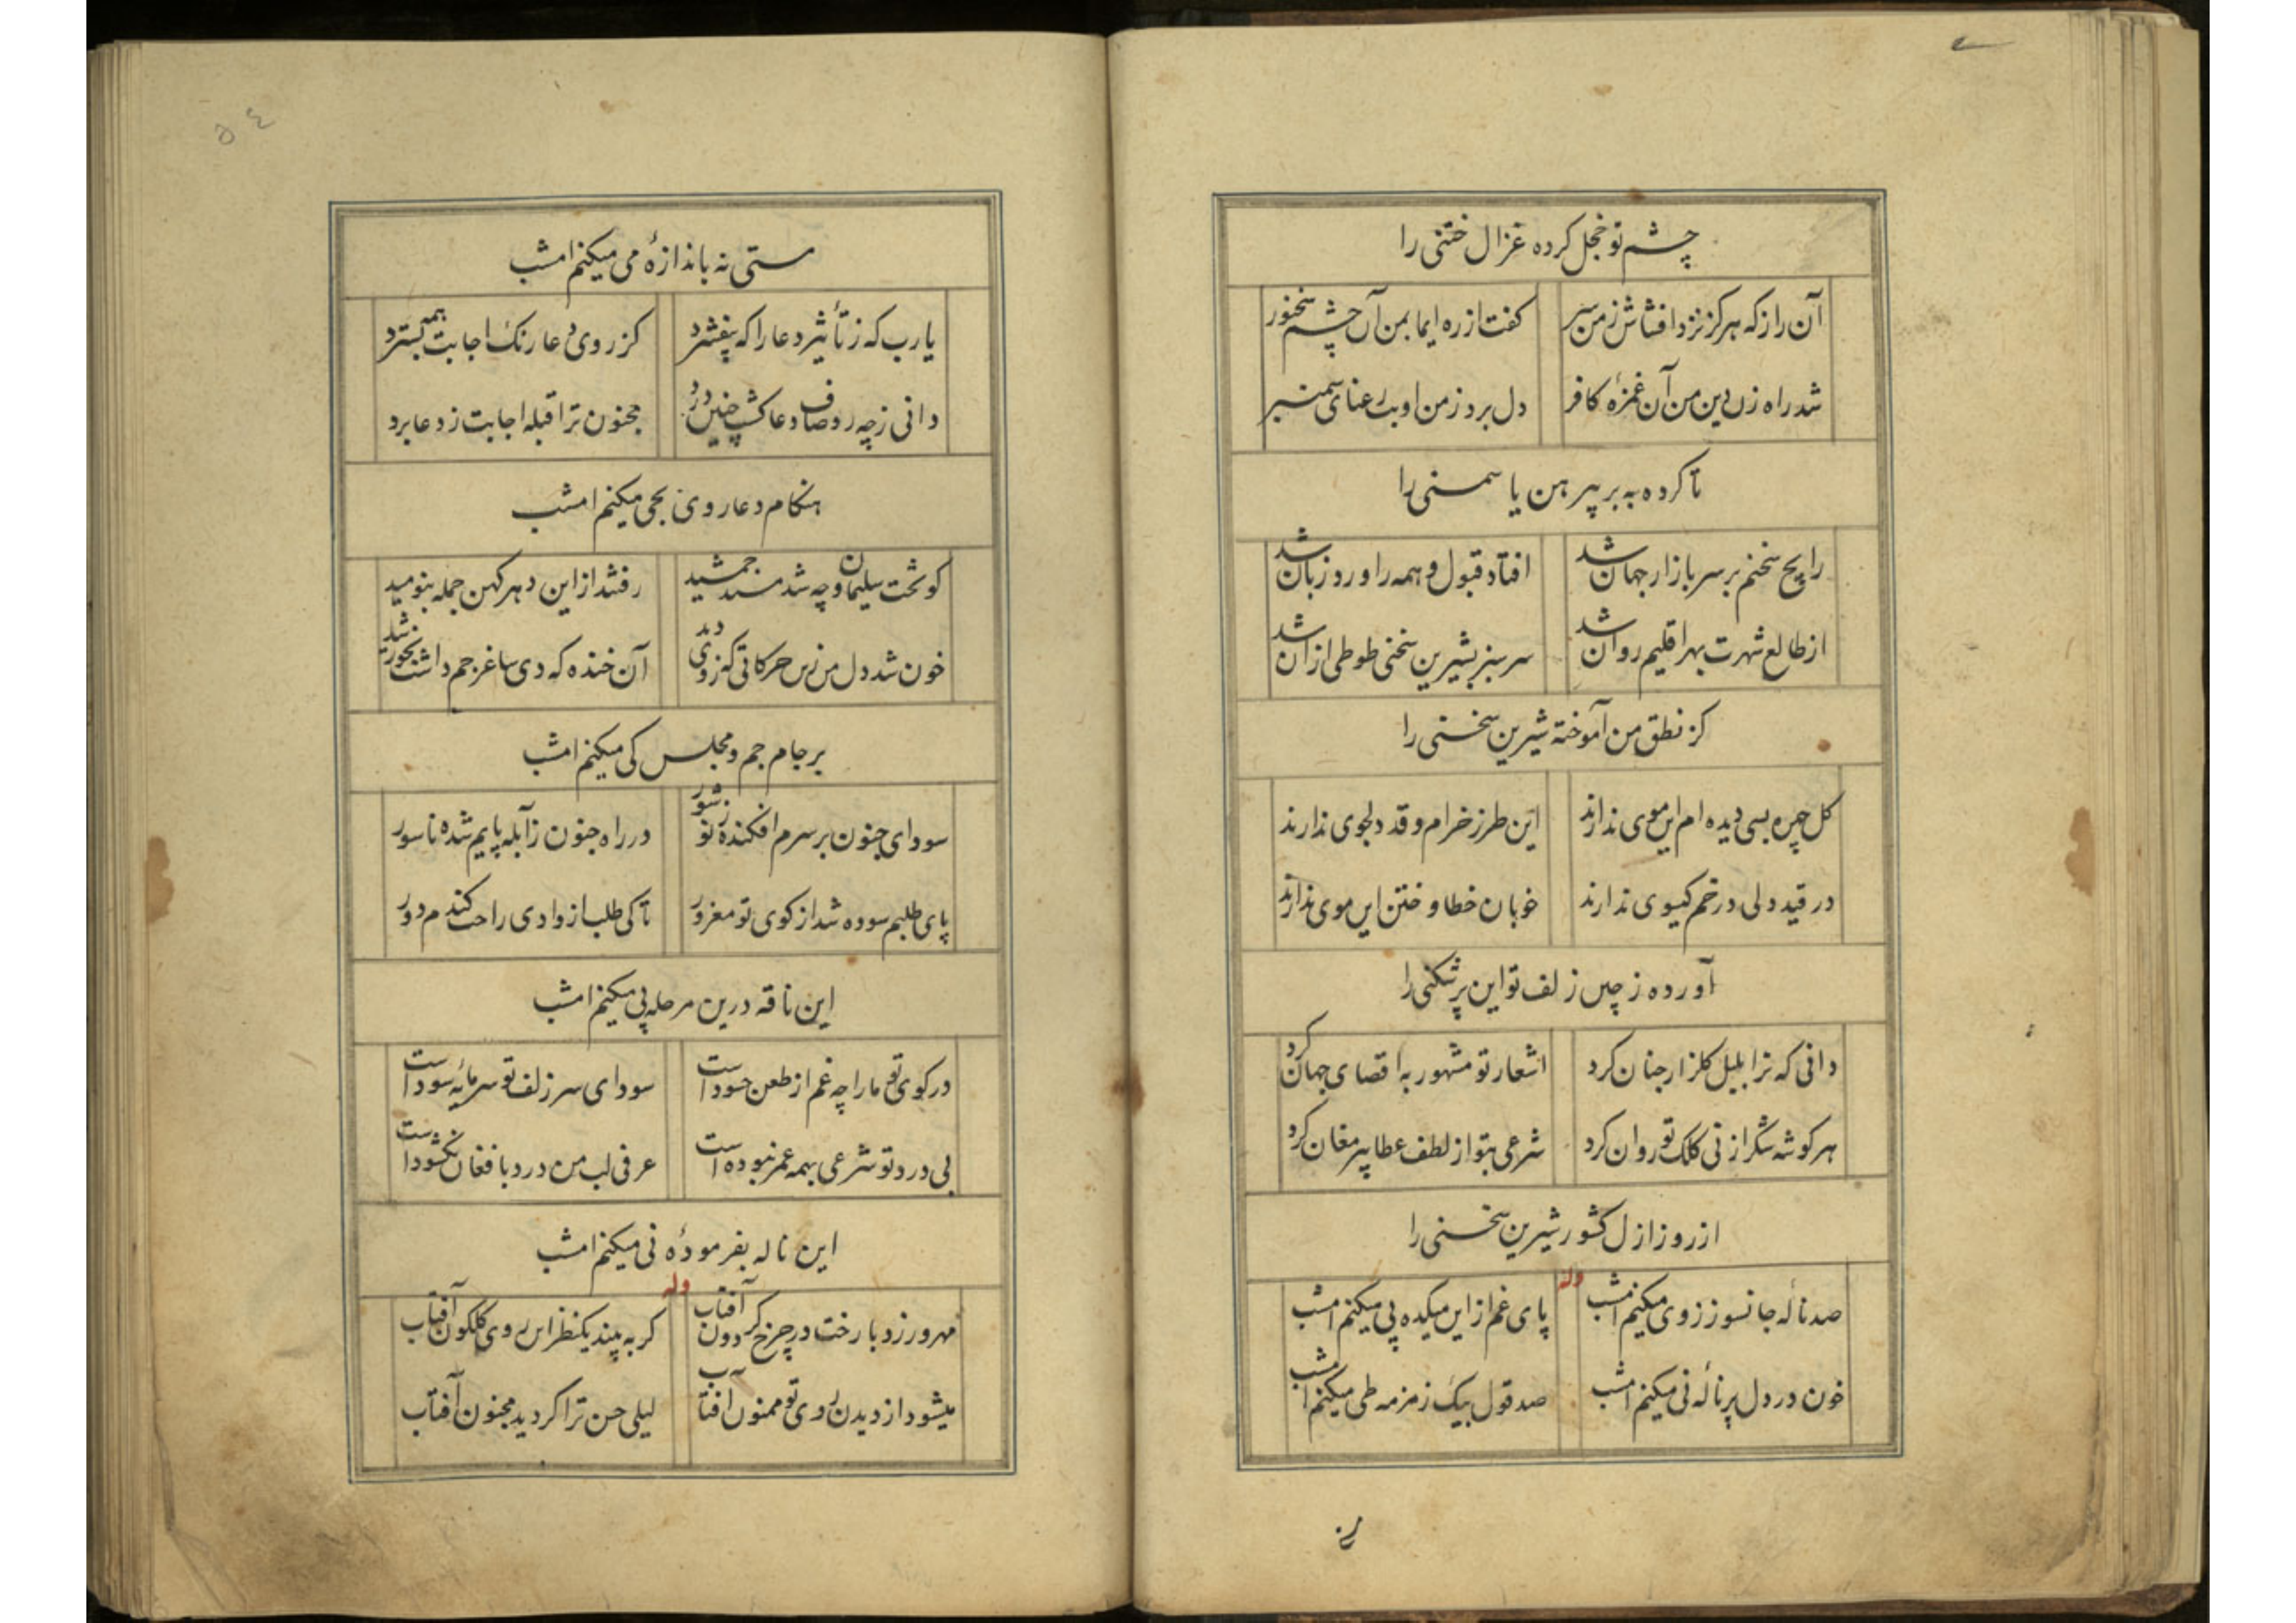 چشم تو خجل کرده غزال ختنی را
آن راز که هرگز نزد افشاش ز من سر کفت از ره ایما بمن آن چشم سخنور
شد راه زن دین من آن غمزهٔ کافر دل برد ز من او بت رعنای سمنبر
تا کرده به بر پیرهن یاسمنی را
رایج سخنم بر سر بازار جهان شد افتاد قبول و همه را ورد زبان شد
از طالع شهرت بهر اقلیم روان شد سر سبز بشیرین سخنی طوطی از آن شد
کز نطق من آموخته شیرین سخنی را
کل چهره بسی دیده ام این موی ندارند این طرز خرام و قد دلجوی ندارند
در قید دلی در خم کیسوی ندارند خوبان خطا و ختن این موی ندارند
آورده ز چین زلف تو این پرشکنی را
دانی که ترا بلبل کلزار جنان کرد اشعار تو مشهور به اقصای جهان کرد
هر کوشه شکر از نی کلک تو روان کرد شرعی بتو از لطف عطا پیر مغان کرد
از روز ازل کشور شیرین سخنی را
وله
صد نالهٔ جانسوز ز وی میکنم امشب پای غم از این میکده پی میکنم امشب
خون در دل پر نالهٔ نی میکنم امشب صد قول بیک زمزمه طی میکنم امشب
مستی نه باندازهٔ می میکنم امشب
یارب که ز تأثیر دعا را که بیفشرد کز روی دعا رنک اجابت همه بسترد
دانی ز چه رو صاف دعا کشت چنین درد مجنون ترا قبله اجابت ز دعا برد
هنکام دعا روی بحی میکنم امشب
کو تخت سلیمان و چه شد مسند جمشید رفتند از این دهر کهن جمله بنومید
خون شد دل من زین حرکاتی که ز وی دید آن خنده که دی ساغر جم داشت بخورشید
بر جام جم و مجلس کی میکنم امشب
سودای جنون بر سرم افکنده ز نو شور در راه جنون ز آبله پایم شده ناسور
پای طلبم سوده شد از کوی تو مغرور تا کی طلب از وادی راحت کندم دور
این ناقه درین مرحله پی میکنم امشب
در کوی تو ما را چه غم از طعن حسود است سودای سر زلف تو سرمایه سود است
بی درد تو شرعی همه عمر نبوده است عرفی لب من درد بافغان نکشود است
این ناله بفرمودهٔ نی میکنم امشب
وله
مهر ورزد با رخت در چرخ کردون آفتاب کر به بیند یکنظر این روی کلکون آفتاب
میشود از دیدن روی تو ممنون آفتاب لیلی حسن ترا کردید مجنون آفتاب